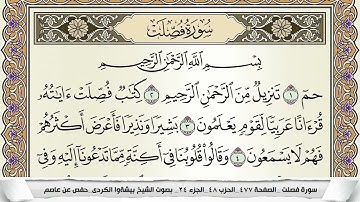 سُورَةُ فُصِّلَتْ
بِسْمِ اللَّهِ الرَّحْمَٰنِ الرَّحِيمِ
حمٓ ١ تَنزِيلٌ مِّنَ الرَّحْمَٰنِ الرَّحِيمِ ٢ كِتَٰبٌ فُصِّلَتْ ءَايَٰتُهُۥ
قُرْءَانًا عَرَبِيًّا لِّقَوْمٍ يَعْلَمُونَ ٣ بَشِيرًا وَنَذِيرًا فَأَعْرَضَ أَكْثَرُهُمْ
فَهُمْ لَا يَسْمَعُونَ ٤ وَقَالُوا۟ قُلُوبُنَا فِىٓ أَكِنَّةٍ مِّمَّا تَدْعُونَآ إِلَيْهِ وَفِىٓ
سورة فصلت . الصفحة ٤٧٧ . الحزب ٤٨ . الجزء ٢٤ . بصوت الشيخ بيشةوا الكردى . حفص عن عاصم